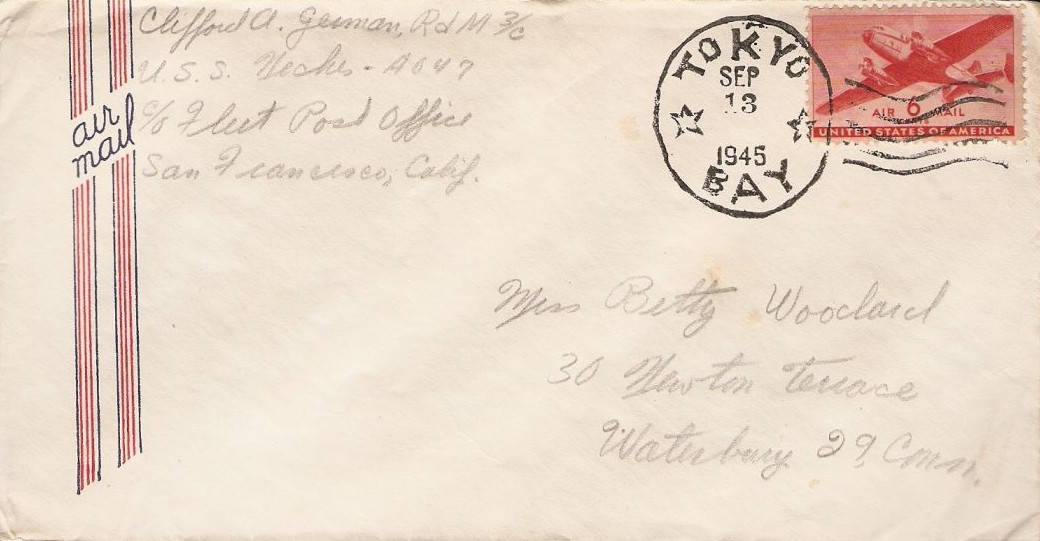 Clifford A. German, RdM 3/c
U.S.S. Neches - AO47
c/o Fleet Post Office
San Francisco, Calif.
air
mail
TOKYO
SEP
13
1945
BAY
AIR 6 MAIL
UNITED STATES OF AMERICA
Miss Betty Woodard
30 Newton Terrace
Waterbury 29, Conn.